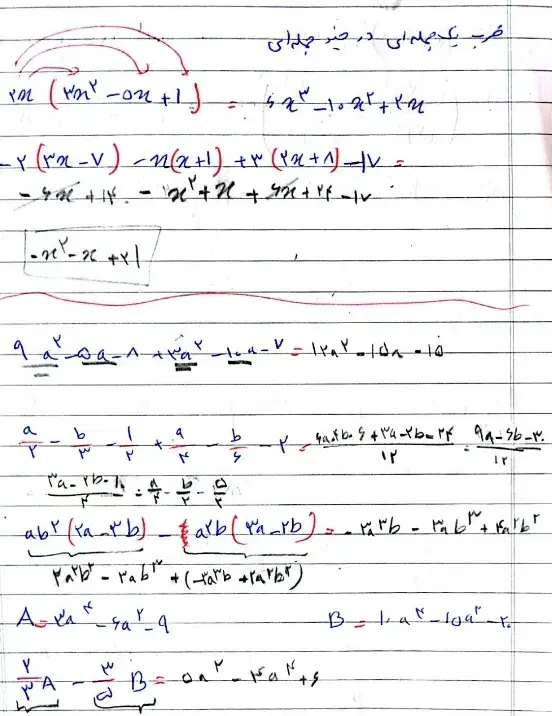 ضرب یک جمله‌ای در چند جمله‌ای
۲x (۳x² − ۵x + ۱) = ۶x³ − ۱۰x² + ۲x
− ۲ (۳x − ۷) − x(x + ۱) + ۳ (۲x + ۸) − ۱۷ =
− ۶x + ۱۴ − x² + x + ۶x + ۲۴ − ۱۷
− x² − x + ۲۱
۹a² − ۵a − ۸ + ۳a² − ۱۰a − ۷ = ۱۲a² − ۱۵a − ۱۵
a/۲ − b/۳ − ۱/۲ + a/۴ − b/۶ − ۲ = (۶a − ۴b − ۶ + ۳a − ۲b − ۲۴)/۱۲ = (۹a − ۶b − ۳۰)/۱۲
ab² (۲a − ۳b) − a²b (۳a − ۲b) = − ۳a³b − ۳ab³ + ۴a²b²
۲a²b² − ۳ab³ + (−۳a³b + ۲a²b²)
A = ۳a⁴ − ۶a² − ۹ B = ۱۰a⁴ − ۱۵a² − ۲۰
۲/۳ A − ۳/۵ B = ۵a² − ۴a⁴ + ۶